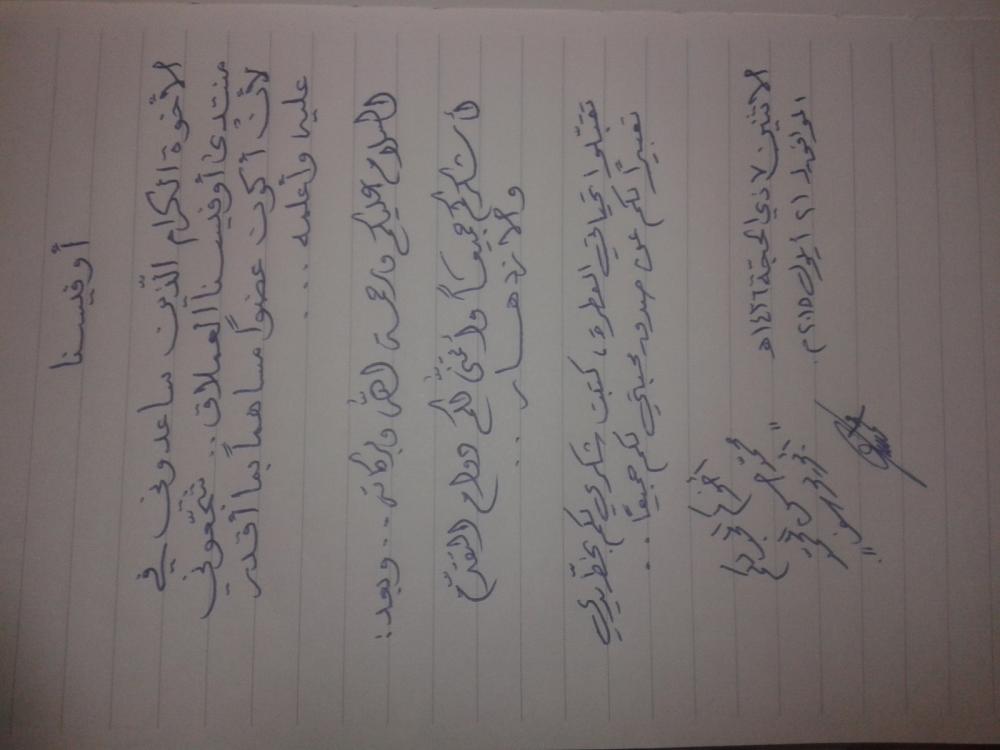 أوفيسنا
الأخوة الكرام الذين ساعدوني في
منتدى أوفيسنا العملاق.. شجعوني
لأن أكون عضواً مساهماً بما أقدر
عليه وأعلمه ....
السلام عليكم ورحمة الله وبركاته... وبعد:
أشكركم جميعاً وأتمنى لكم دوام التقدم
والازدهــار ...
تقبلوا تحياتي العطرة، كتبت شكري لكم بخط يدي
تعبيراً لكم عن صدق محبتي لكم جميعاً..
الاثنين ٧ ذي الحجة ١٤٣٦هـ
الموافق لـ ٢١ أيلول ٢٠١٥م.